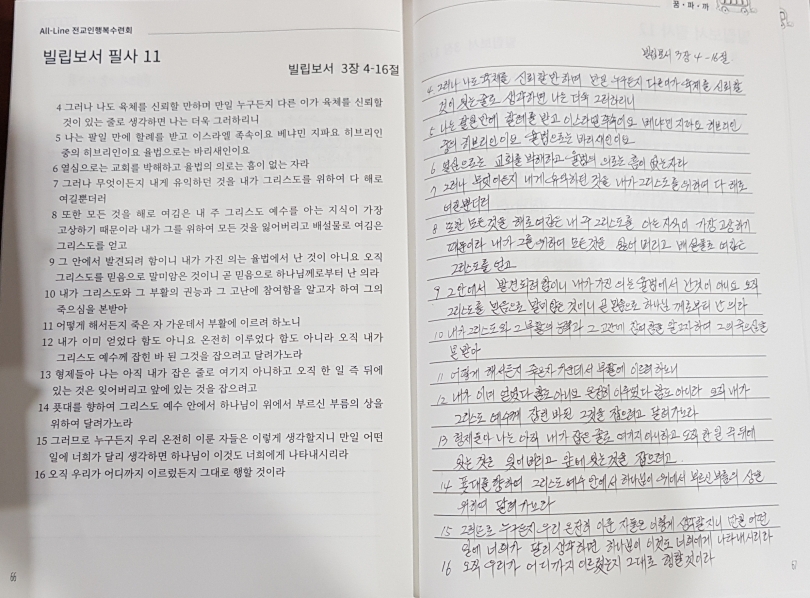 All-Line 전교인행복수련회
빌립보서 필사 11
빌립보서 3장 4-16절
4 그러나 나도 육체를 신뢰할 만하며 만일 누구든지 다른 이가 육체를 신뢰할
것이 있는 줄로 생각하면 나는 더욱 그러하리니
5 나는 팔일 만에 할례를 받고 이스라엘 족속이요 베냐민 지파요 히브리인
중의 히브리인이요 율법으로는 바리새인이요
6 열심으로는 교회를 박해하고 율법의 의로는 흠이 없는 자라
7 그러나 무엇이든지 내게 유익하던 것을 내가 그리스도를 위하여 다 해로
여길뿐더러
8 또한 모든 것을 해로 여김은 내 주 그리스도 예수를 아는 지식이 가장
고상하기 때문이라 내가 그를 위하여 모든 것을 잃어버리고 배설물로 여김은
그리스도를 얻고
9 그 안에서 발견되려 함이니 내가 가진 의는 율법에서 난 것이 아니요 오직
그리스도를 믿음으로 말미암은 것이니 곧 믿음으로 하나님께로부터 난 의라
10 내가 그리스도와 그 부활의 권능과 그 고난에 참여함을 알고자 하여 그의
죽으심을 본받아
11 어떻게 해서든지 죽은 자 가운데서 부활에 이르려 하노니
12 내가 이미 얻었다 함도 아니요 온전히 이루었다 함도 아니라 오직 내가
그리스도 예수께 잡힌 바 된 그것을 잡으려고 달려가노라
13 형제들아 나는 아직 내가 잡은 줄로 여기지 아니하고 오직 한 일 즉 뒤에
있는 것은 잊어버리고 앞에 있는 것을 잡으려고
14 푯대를 향하여 그리스도 예수 안에서 하나님이 위에서 부르신 부름의 상을
위하여 달려가노라
15 그러므로 누구든지 우리 온전히 이룬 자들은 이렇게 생각할지니 만일 어떤
일에 너희가 달리 생각하면 하나님이 이것도 너희에게 나타내시리라
16 오직 우리가 어디까지 이르렀든지 그대로 행할 것이라
66
꿈·파·까
빌립보서 3장 4-16절
4 그러나 나도 육체를 신뢰할만하며 만일 누구든지 다른이가 육체를 신뢰할
것이 있는 줄로 생각하면 나는 더욱 그러하리니
5 나는 팔일만에 할례를 받고 이스라엘족속이요 베냐민 지파요 히브리인
중의 히브리인이요 율법으로는 바리새인이요
6 열심으로는 교회를 박해하고 율법의 의로는 흠이 없는자라
7 그러나 무엇이든지 내게 유익하던 것을 내가 그리스도를 위하여 다 해로
여길뿐더러
8 또한 모든것을 해로여김은 내 주 그리스도를 아는 지식이 가장 고상하기
때문이라 내가 그를 위하여 모든것을 잃어 버리고 배설물로 여김은
그리스도를 얻고
9 그안에서 발견되려함이니 내가 가진 의는 율법에서 난것이 아니요 오직
그리스도를 믿음으로 말미암은 것이니 곧 믿음으로 하나님 께로부터 난 의라
10 내가 그리스도와 그부활의 그 고난에 참여함을 알고자하여 그의 죽으심을
본받아
11 어떻게 해서든지 죽은자 가운데서 부활에 이르려 하노니
12 내가 이미 얻었다 함도 아니요 온전히 이루었다 함도 아니라 오직 내가
그리스도 예수께 잡힌 바된 그것을 잡으려고 달려가노라
13 형제들아 나는 아직 내가 잡은 줄로 여기지 아니하고 오직 한 일 즉 뒤에
있는 것은 잊어버리고 앞에 있는 것을 잡으려고
14 푯대를 향하여 그리스도 예수 안에서 하나님이 위에서 부르신 부름의 상을
위하여 달려가노라
15 그러므로 누구든지 우리 온전히 이룬 자들은 이렇게 생각할지니 만일 어떤
일에 너희가 달리 생각하면 하나님이 이것도 너희에게 나타내시리라
16 오직 우리가 어디까지 이르렀든지 그대로 행할것이라